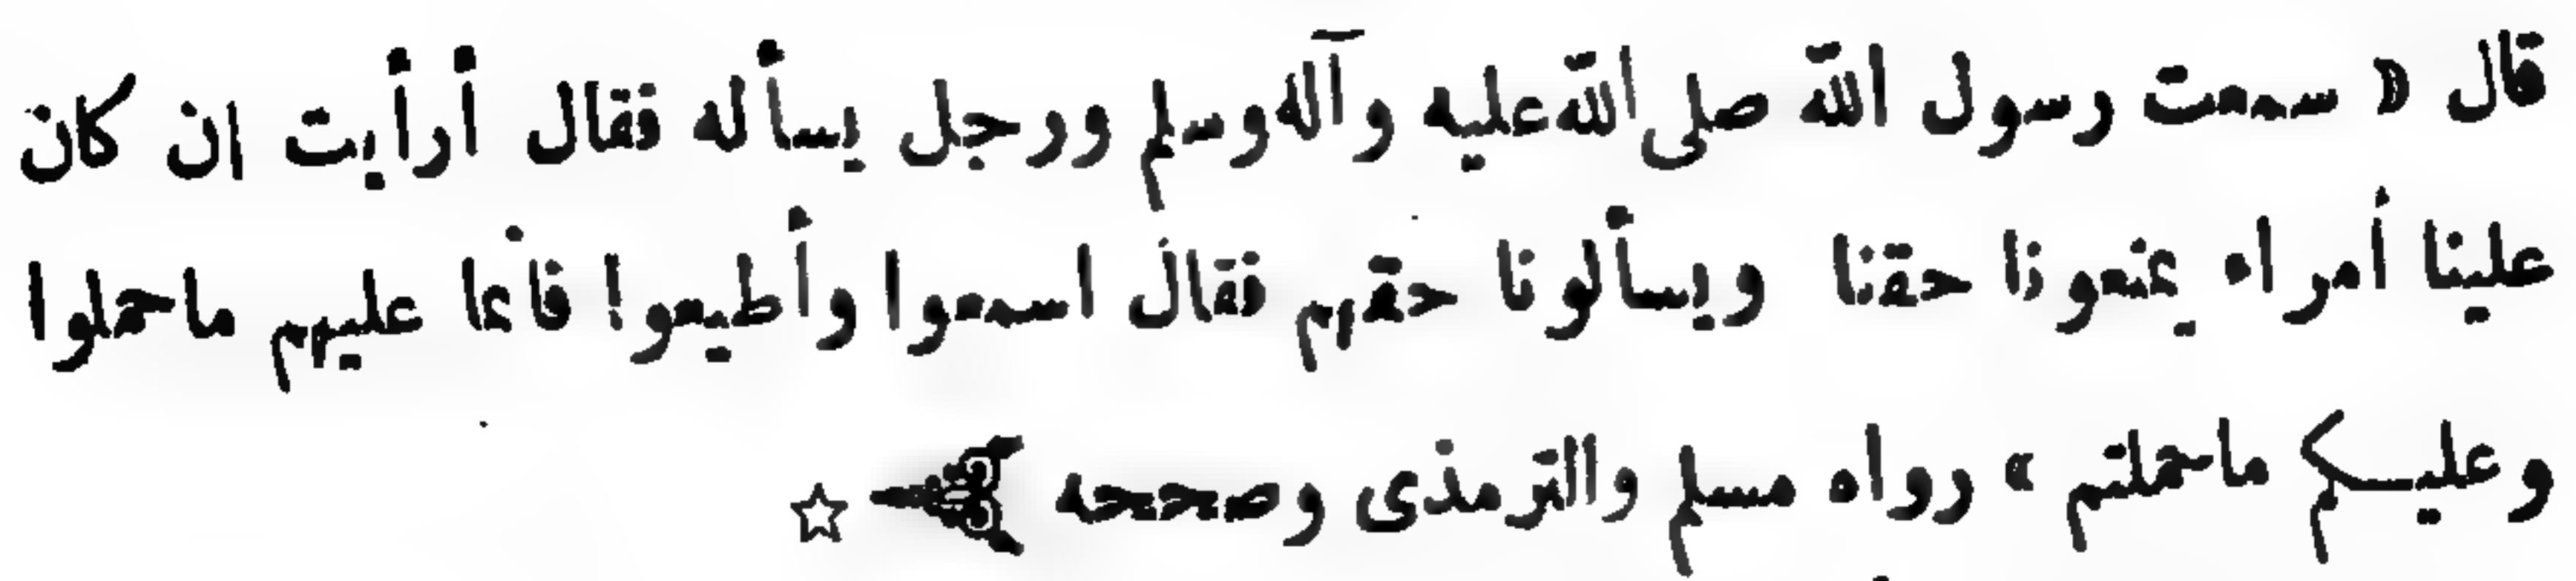 قال « سمعت رسول الله صلى الله عليه وآله وسلم ورجل يسأله فقال أرأيت ان كان
علينا أمراء يمنعونا حقنا ويسألونا حقهم فقال اسمعوا وأطيعوا فأنما عليهم ماحملوا
وعليكم ماحملتم » رواه مسلم والترمذى وصححه ☆